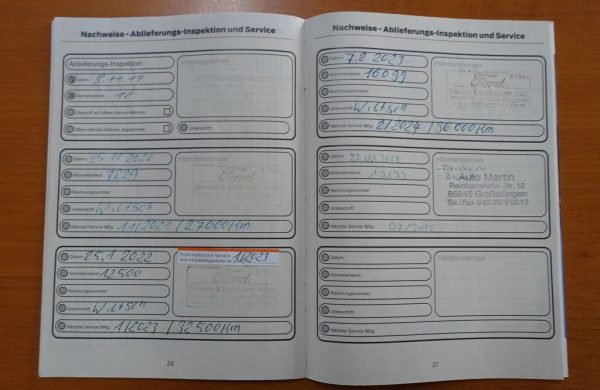 Nachweise - Ablieferungs-Inspektion und Service
Ablieferungs-Inspektion
Vertragspartner
Datum: 8.11.19
Kilometerstand: 10
Überprüft auf offene Service Aktionen
Offene Service Aktionen abgearbeitet
Unterschrift:
Datum: 25.11.2020
Händlerstempel
Kilometerstand: 7229
Ford
Rechnungsnummer:
Unterschrift: Wiltsch
Nächste Service fällig: 11/2021 / 27000Km
Datum: 25.1.2022
Ford Assistance Service 1/2023
Kilometerstand: 12500
Ford
Rechnungsnummer:
Unterschrift: Wiltsch
Nächste Service fällig: 1/2023 / 32500Km
26
Nachweise - Ablieferungs-Inspektion und Service
Datum: 7.2.2023
Händlerstempel
Kilometerstand: 16099
Ford
Rechnungsnummer:
Unterschrift: Wiltsch
Nächste Service fällig: 2/2024 / 36000Km
Datum: 22.01.2024
Händlerstempel
Kilometerstand:
Auto Martin
Rechnungsnummer:
Reinhartshofer Str. 12
86845 Großaitingen
Unterschrift:
Tel./Fax 08203/90013
Nächste Service fällig: 02/2025
Datum:
Händlerstempel
Kilometerstand:
Rechnungsnummer:
Unterschrift:
Nächste Service fällig:
27